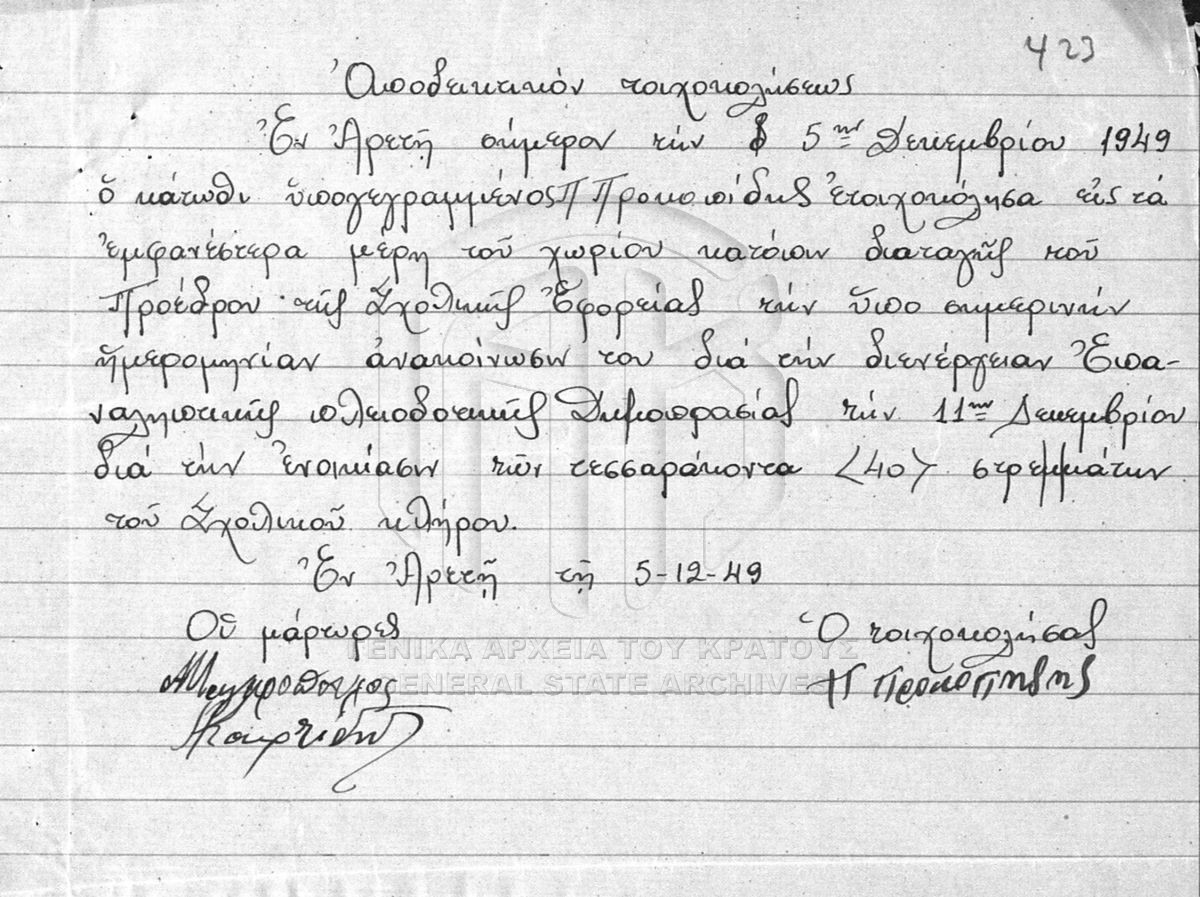 423
Ἀποδεικτικόν τοιχοκολήσεως
Ἐν Ἀρετῇ σήμερον τήν 5ην Δεκεμβρίου 1949
ὁ κάτωθι ὑπογεγραμμένος Π Προκοπίδης ἐτοιχοκόλησα εἰς τά
ἐμφανέστερα μέρη τοῦ χωρίου κατόπιν διαταγῆς τοῦ
Προέδρου τῆς Σχολικῆς Ἐφορείας τήν ὑπο σημερινήν
ἡμερομηνίαν ἀνακοίνωσιν του διά τήν διενέργειαν Ἐπα-
ναληπτικῆς πλειοδοτικῆς Δημοπρασίας τήν 11ην Δεκεμβρίου
διά τήν ἐνοικίασιν τῶν τεσσαράκοντα <40> στρεμμάτων
τοῦ Σχολικοῦ κλήρου.
Ἐν Ἀρετῇ τῇ 5-12-49
Οἱ μάρτυρες Ὁ τοιχοκολήσας
Π Προκοπηδης
ΓΕΝΙΚΑ ΑΡΧΕΙΑ ΤΟΥ ΚΡΑΤΟΥΣ
GENERAL STATE ARCHIVES